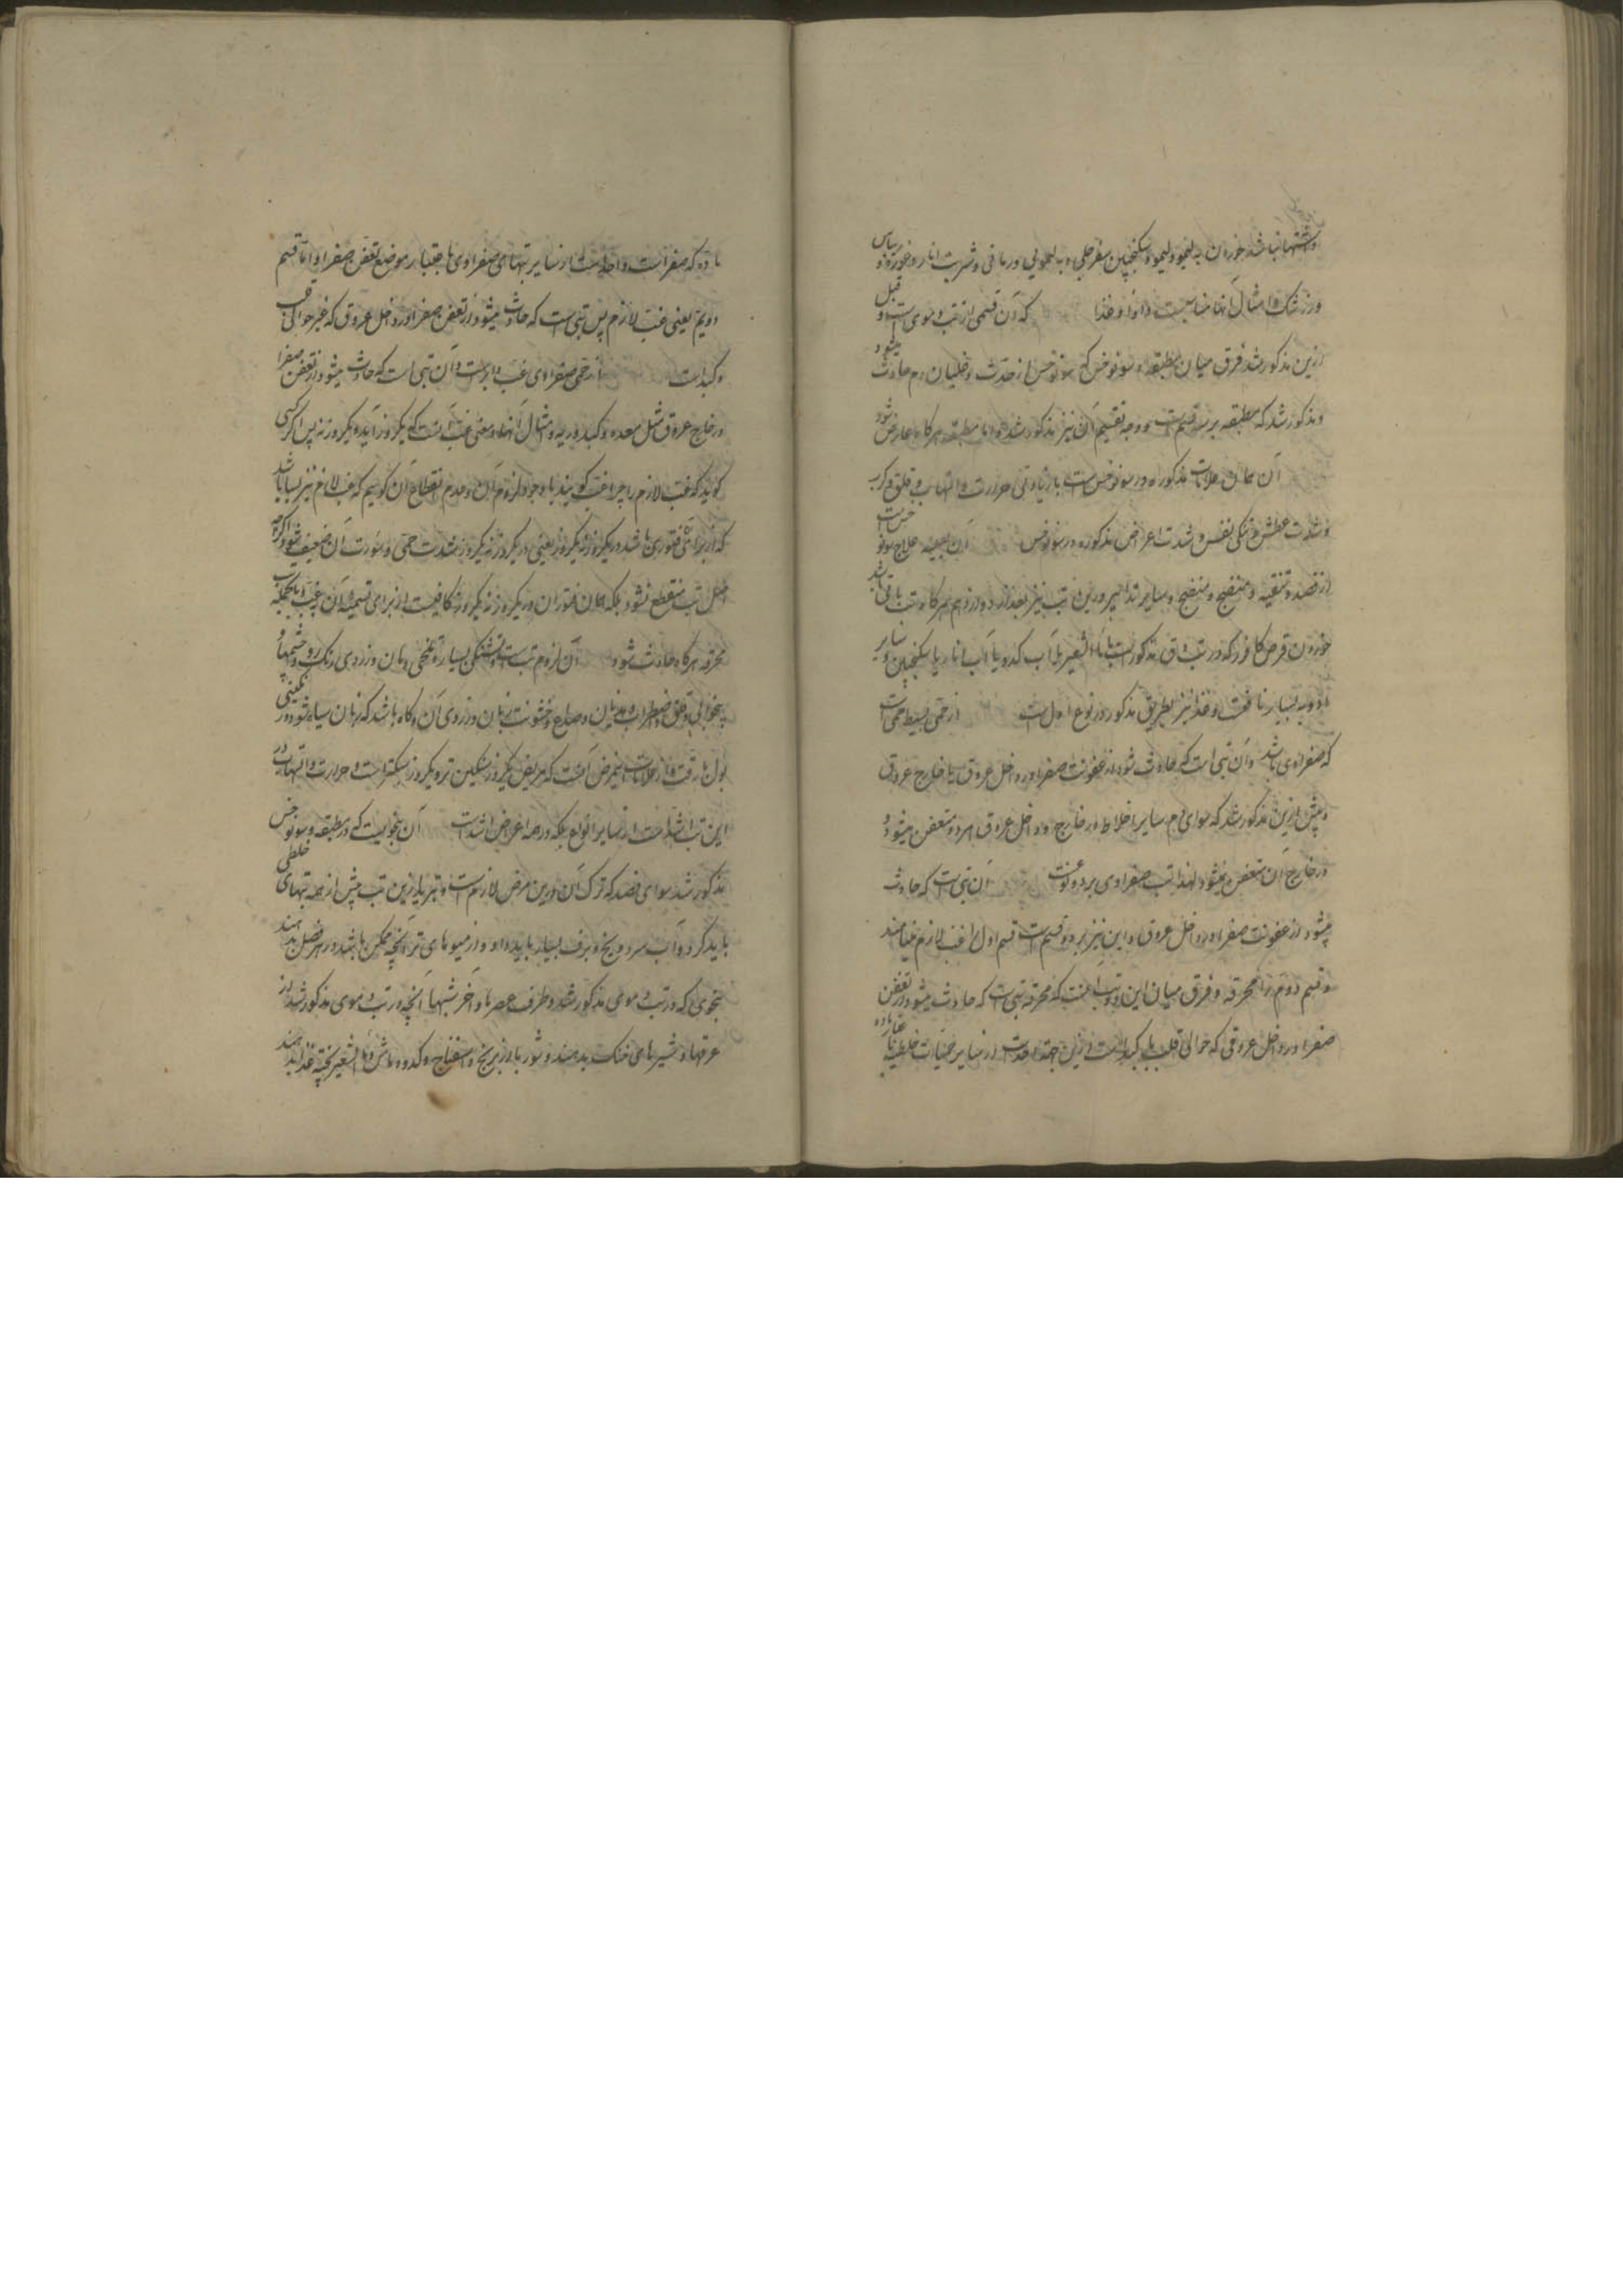 و اشتها نباشد خوردن به لیمو و لیمو و سکنجبین سفرجلی و به لیمویی و رمانی و شربت انار و غوره و ریباس
و زرشک و امثال آنها مناسبست دوا و غذا که آن قسمی از تب دموی است و قبل
ازین مذکور شد فرق میان مطبقه و سونوخس که سونوخس از حدت و غلیان دم حادث میشود
و مذکور شد که مطبقه بر سه قسم است و وجه تقسیم آن نیز مذکور شد و اما مطبقه هرگاه عارض شود
آن همان علامات مذکوره در سونوخس است با زیادتی حرارت و التهاب و قلق و کرب
و شدت عطش و تنگی نفس و شدت اعراض مذکوره در سونوخس آن بعینه علاج سونوخس است
از فصد و تنقیه و منضج و سایر تدابیر و درین تب نیز بعد از دوازدهم هرگاه تب باقی باشد
خوردن قرص کافور که در تب دق مذکور است با ماء الشعیر یا آب کدو یا آب انار یا سکنجبین و سایر
ادویه بسیار نافعست و غذا نیز بطریق مذکور در نوع اول است از حمی بسیط حمی است
که صفراوی باشد و آن تبی است که حادث شود از عفونت صفرا در داخل عروق یا خارج عروق
و پیش ازین مذکور شد که سوای دم سایر اخلاط در خارج و داخل عروق هر دو متعفن میشود و
در خارج آن متعفن نمیشود لهذا تب صفراوی بر دو نوعست آن تبی است که حادث
میشود از عفونت صفرا در داخل عروق و این نیز بر دو قسم است قسم اول را غب لازم مینامند
و قسم دوم را محرقه و فرق میان این دو تب آنست که محرقه تبی است که حادث میشود از تعفن
صفرا در داخل عروقی که حوالی قلب یا کبد است و ازین جهة احد است از سایر حمیات خلطیه باعتبار
ماده که صفراست و احد است از سایر تبهای صفراوی باعتبار موضع تعفن صفرا و اما قسم
دویم یعنی غب لازم پس تبی است که حادث میشود از تعفن صفرا در داخل عروق که غیر حوالی قلب
و کبد است از حمی صفراوی غب دایر است و آن تبی است که حادث میشود از تعفن صفرا
در خارج عروق مثل معده و کبد و ریه و امثال آنها و معنی غب آنست که یکروز آید و یکروز نه پس اگر کسی
گوید که غب لازم را چرا غب گویند با وجود لزوم آن و عدم انقطاع آن گوییم که غب لازم نیز بسا باشد
که از برای تب فتوری باشد در یکروز نه یکروز یعنی در یکروز نه یکروز شدت حمی و سورت آن ضعیف شود اگرچه
اصل تب منقطع نشود بلکه همان فتور آن در یکروز نه یکروز کافیست از برای تسمیه آن بغب و بالجمله تب
محرقه هرگاه حادث شود آن لزوم تب است و تشنگی بسیار و تلخی دهان و زردی رنگ رو و چشمها و
بیخوابی و قلق و اضطراب و هذیان و صداع و خشونت زبان و زردی آن و گاه باشد که زبان سیاه شود و رنگینی
بول با رقت و از علامات اینمرض آنست که مریض یکروز سنگین تر و یکروز سبکتر است و حرارت و التهاب در
این تب اشد است از سایر انواع بلکه در همه اعراض اشد است آن بنحویست که در مطبقه و سونوخس
مذکور شد سوای فصد که ترک آن درین مرض لازم است و تبرید ازین تب بیش از همه تبهای خلطی
باید کرد و آب سرد و یخ و برف بسیار باید داد و از میوه های تر آنچه ممکن باشد در هر فصل بدهند
بنحوی که در تب دموی مذکور شد و طرف عصرها و آخر شبها آنچه در تب دموی مذکور شد از
عرقها و شیرهای خنک بدهند و شوربا و از برنج و اسفناج و کدو و ماش و ماء الشعیر پخته غذا بدهند